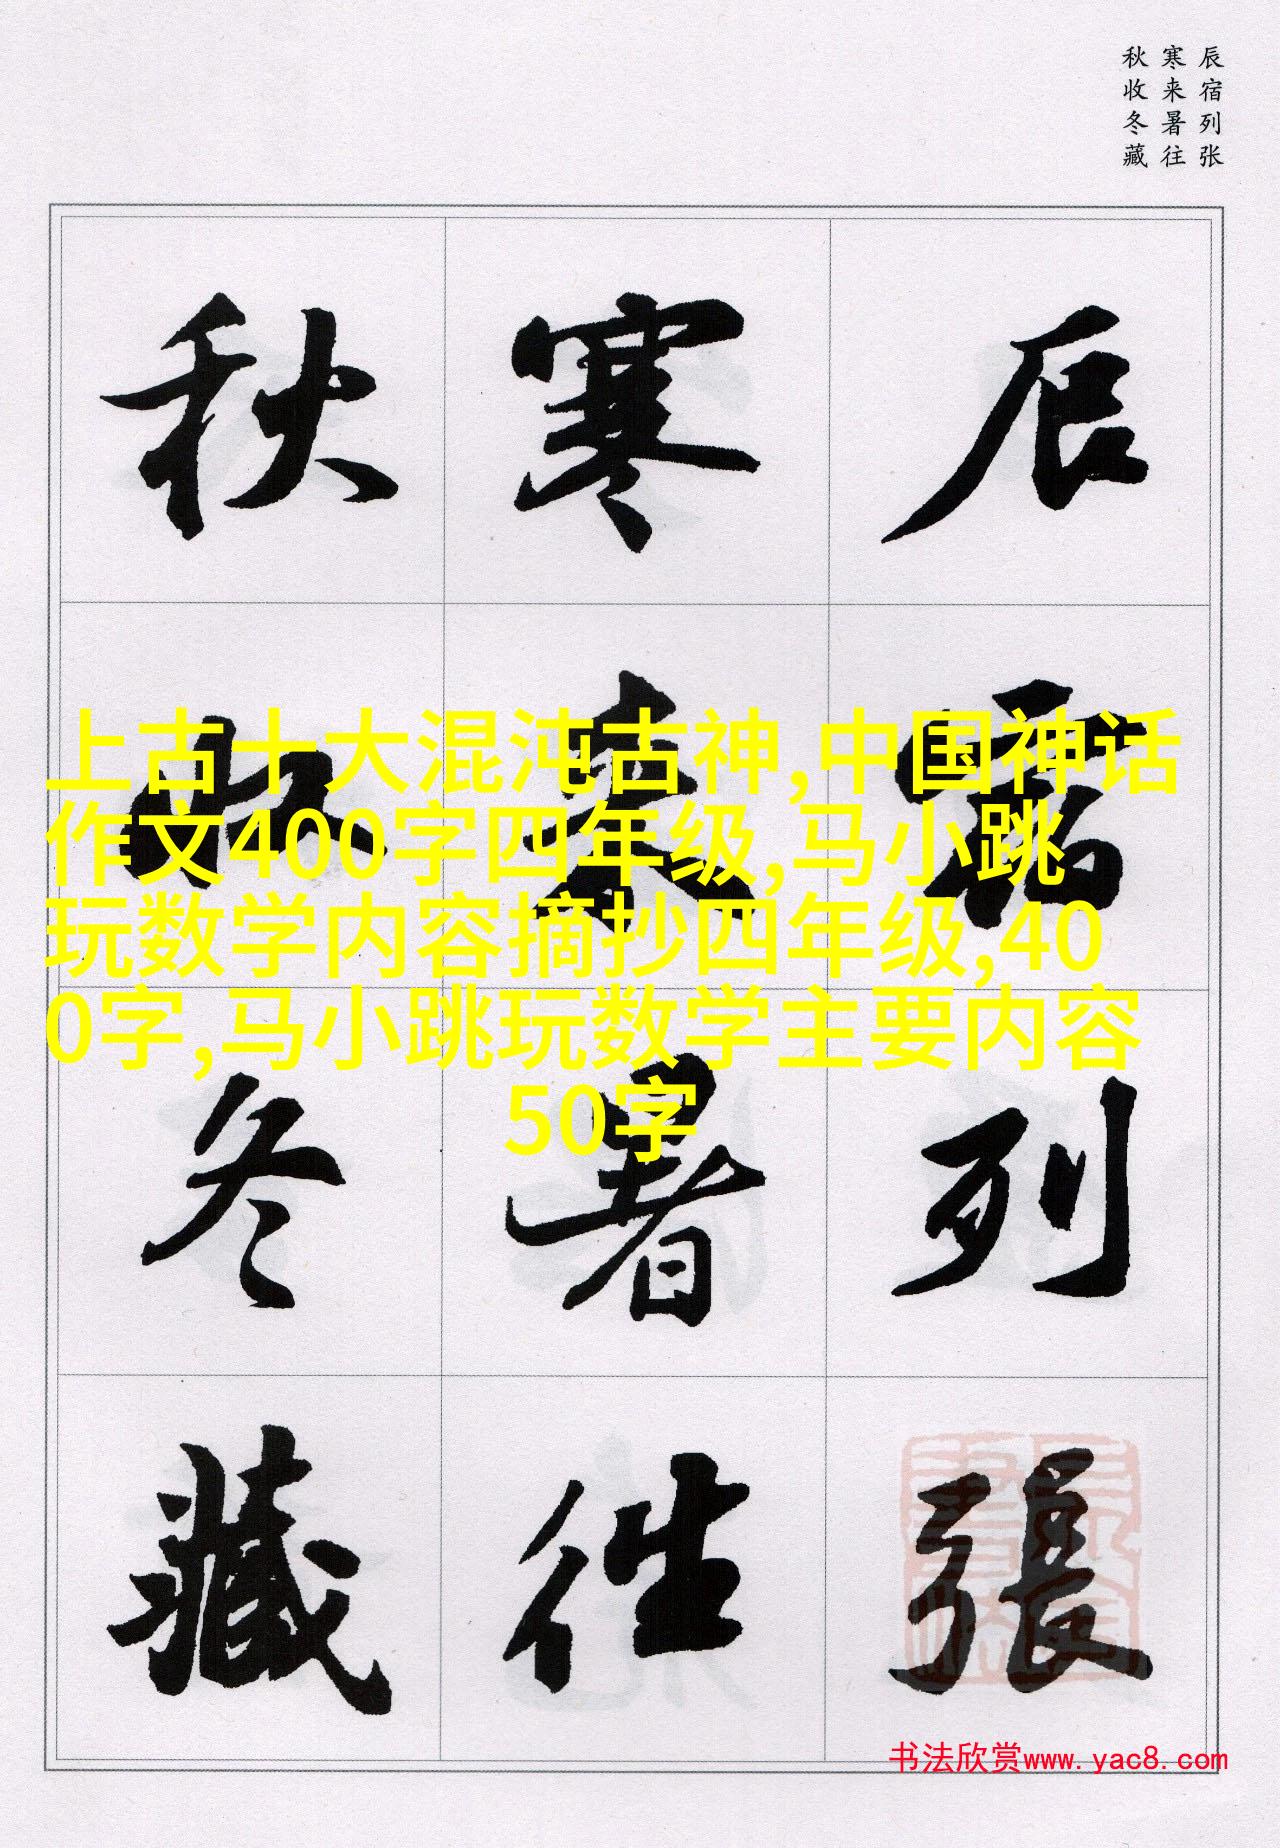 辰宿列张
寒来暑往
秋收冬藏
辰宿列張
寒来暑往
秋收冬藏
上古十大混沌古神,中国神话
作文400字四年级,马小跳
玩数学内容摘抄四年级,40
0字,马小跳玩数学主要内容
50字
书法欣赏www.yac8.com